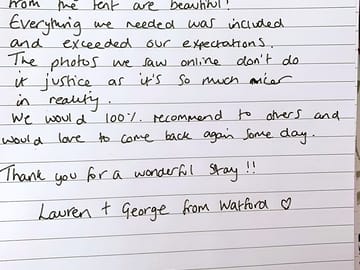 from the tent are beautiful!
Everything we needed was included
and exceeded our expectations.
The photos we saw online don't do
it justice as it's so much nicer
in reality.
We would 100% recommend to others and
would love to come back again some day.
Thank you for a wonderful stay!!
Lauren + George from Watford ♡